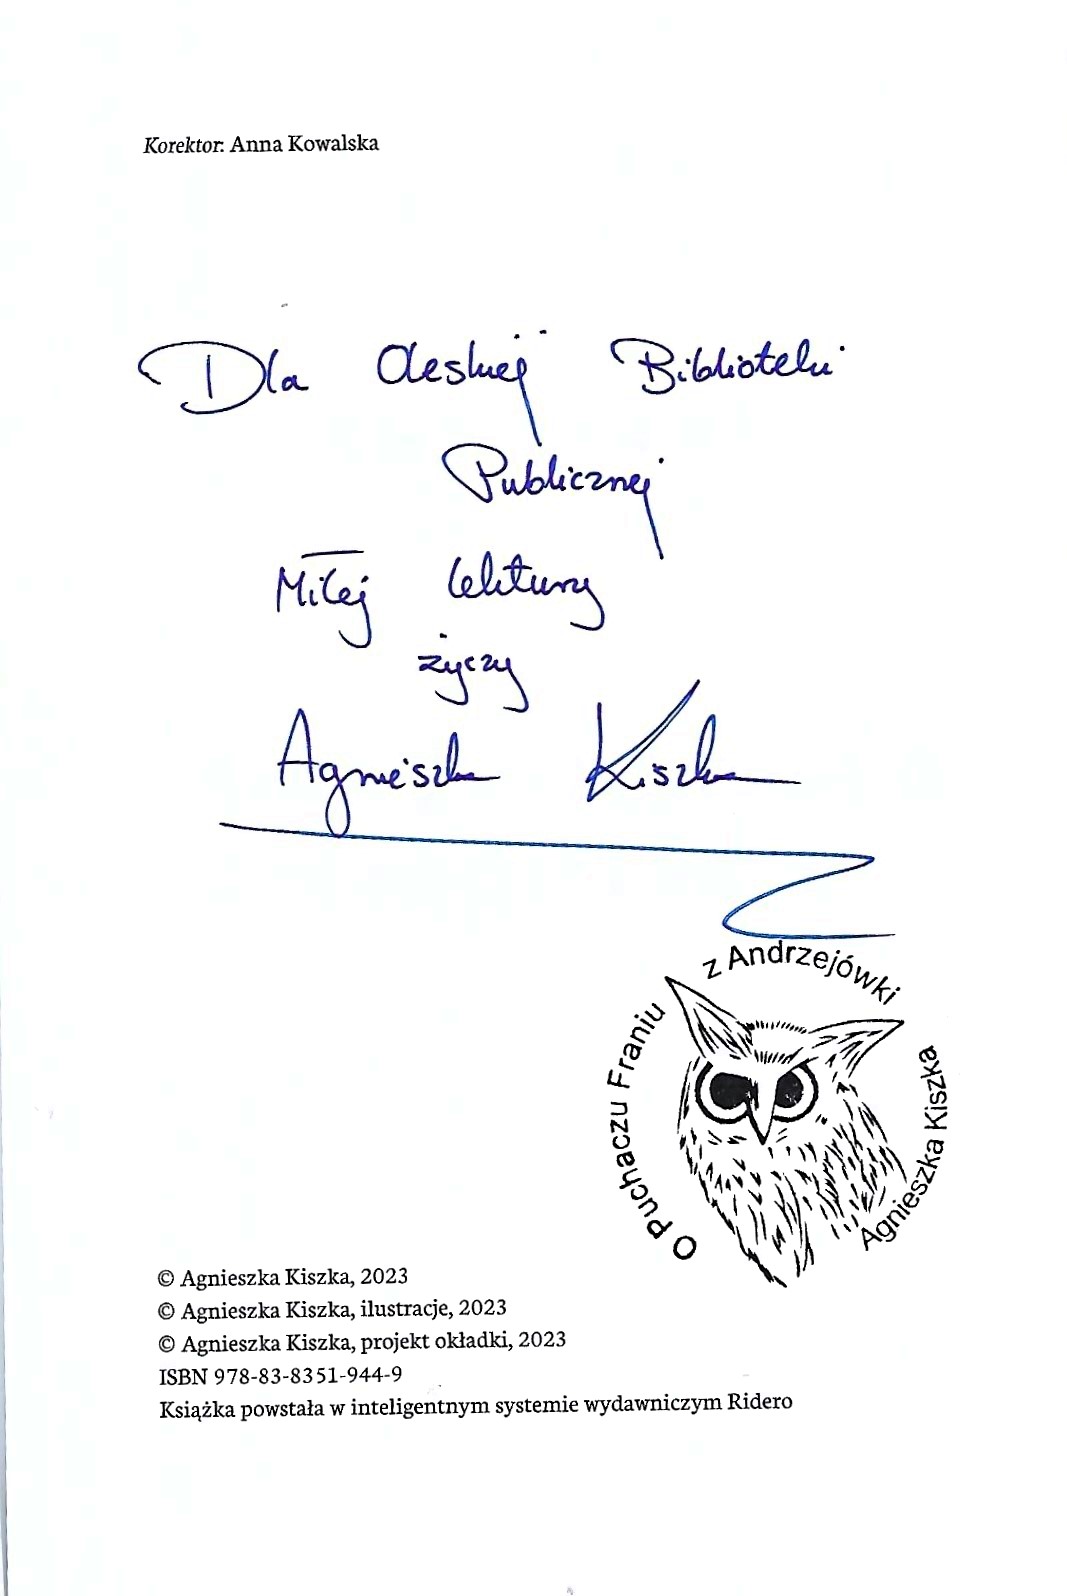 Korektor: Anna Kowalska
Dla Oleskiej Biblioteki
Publicznej
Miłej lektury
życzy
Agnieszka Kiszka
O Puchaczu Franiu z Andrzejówki
Agnieszka Kiszka
© Agnieszka Kiszka, 2023
© Agnieszka Kiszka, ilustracje, 2023
© Agnieszka Kiszka, projekt okładki, 2023
ISBN 978-83-8351-944-9
Książka powstała w inteligentnym systemie wydawniczym Ridero